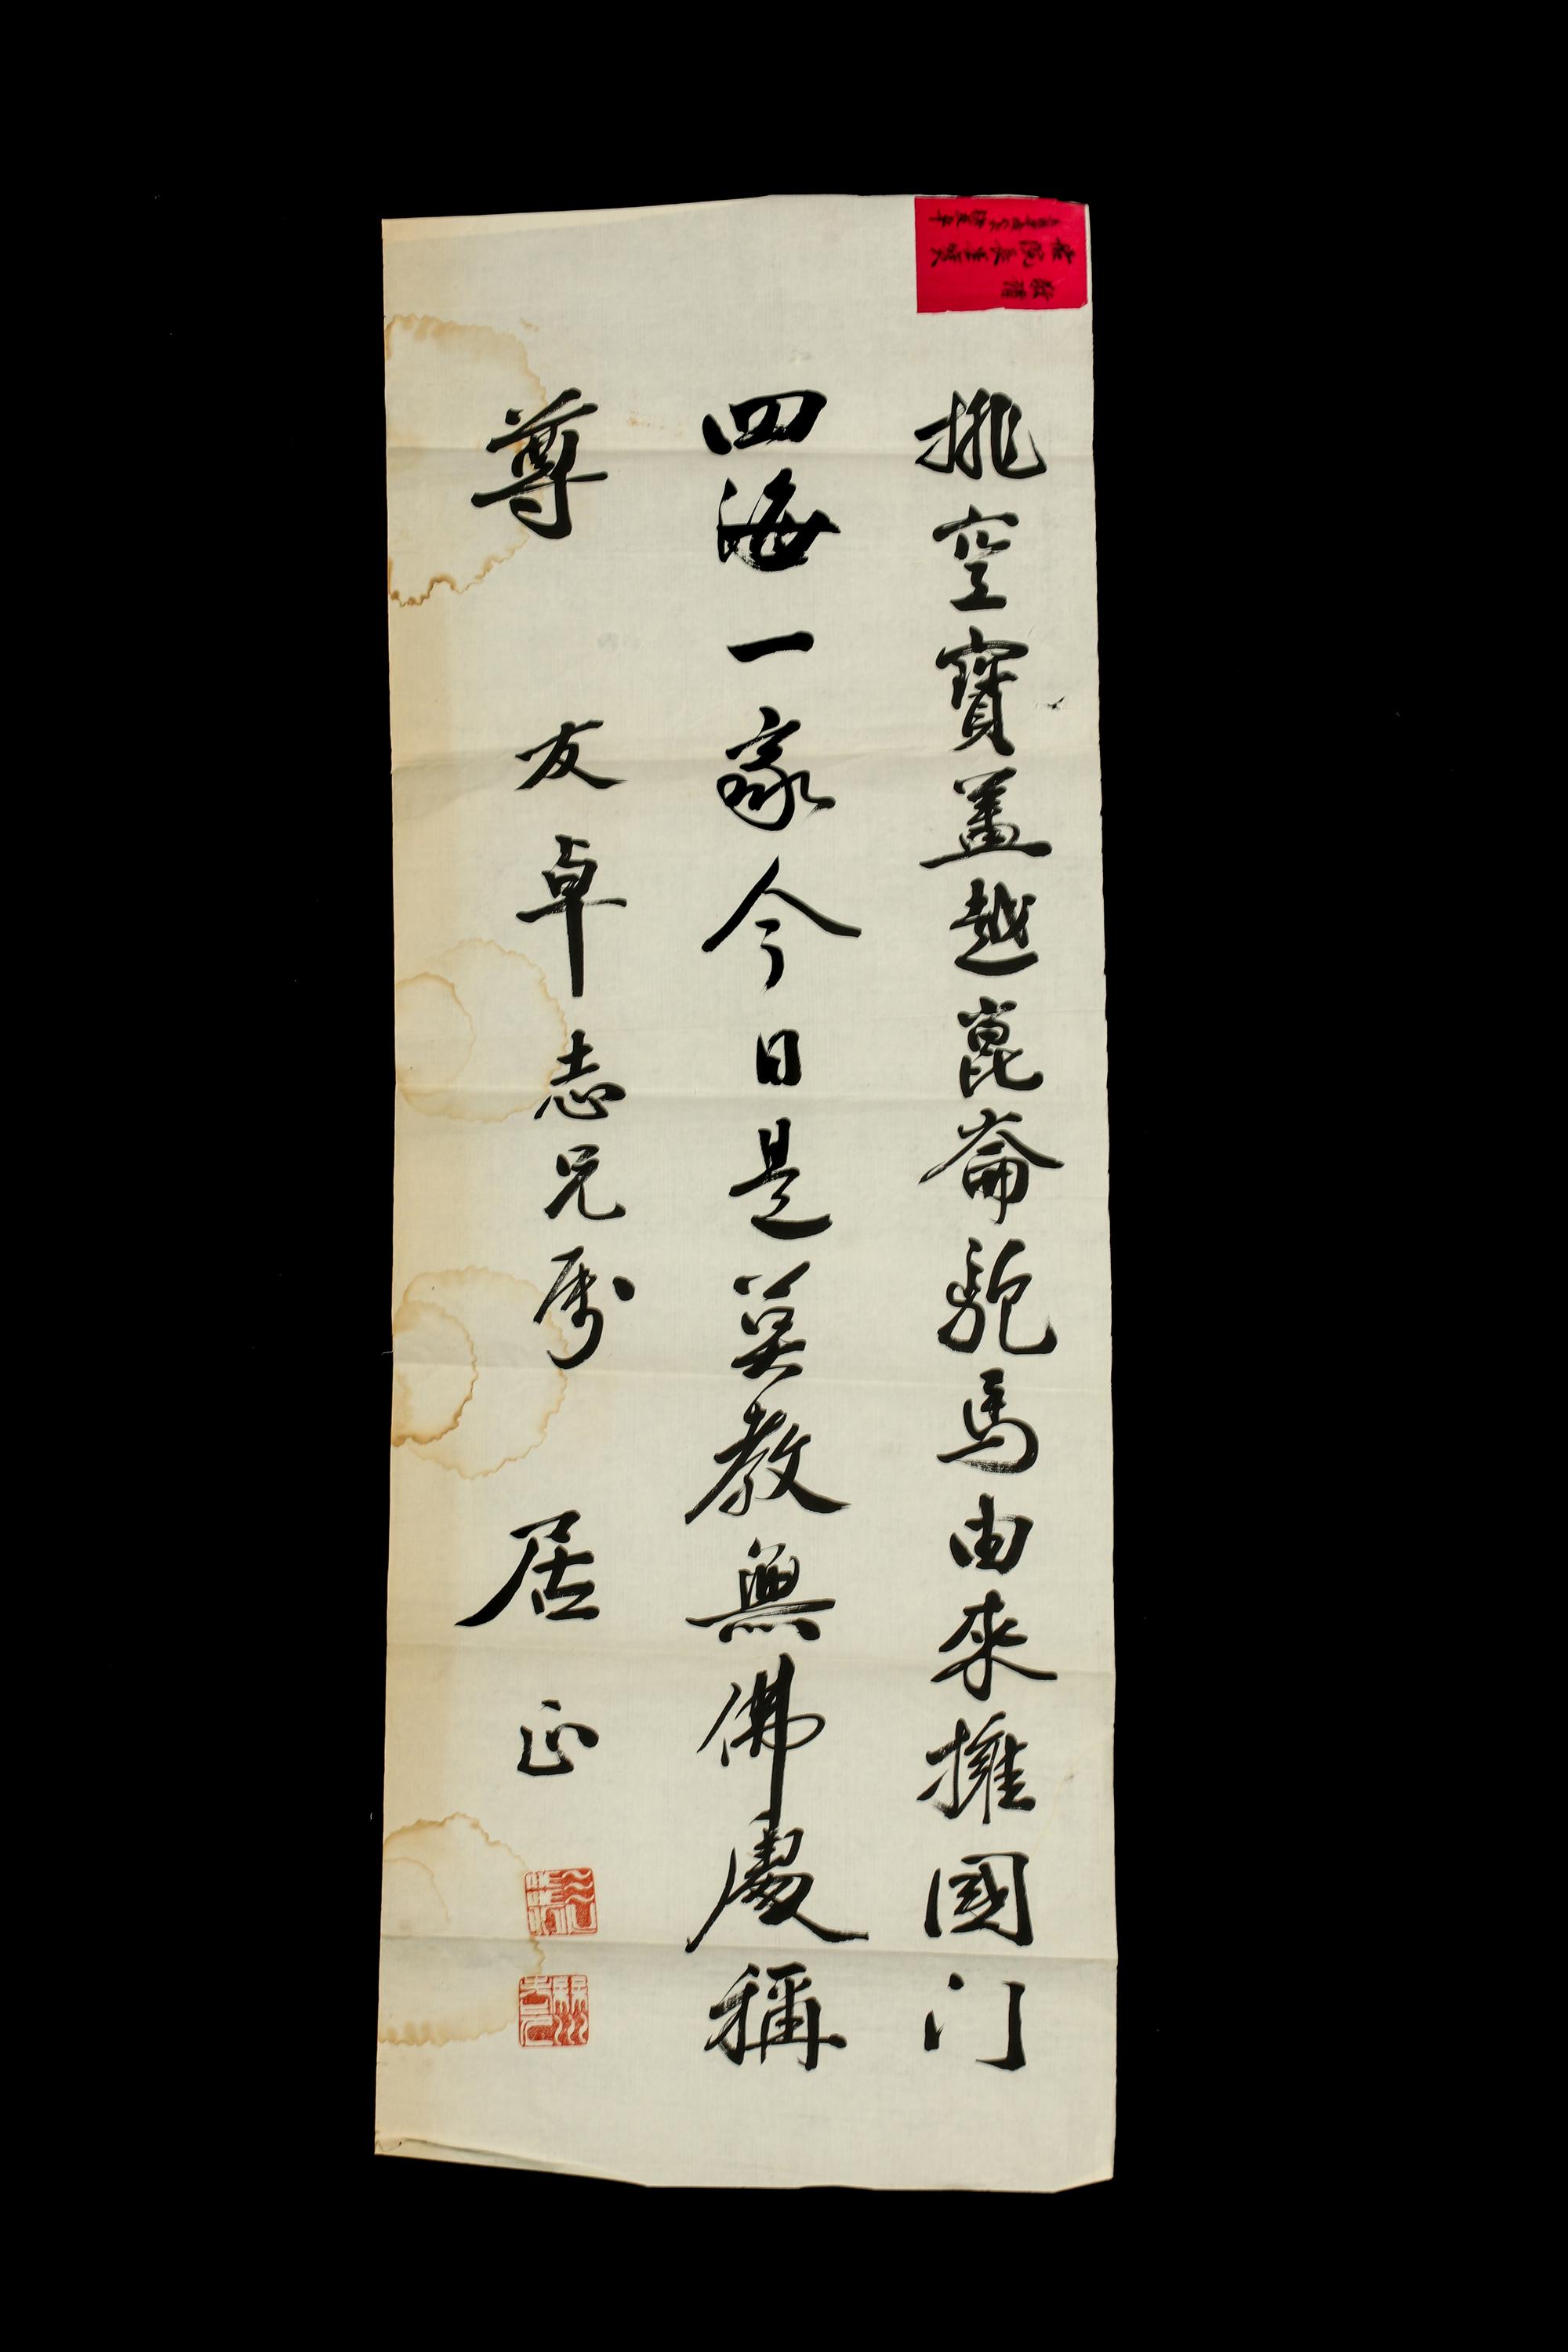 排空寶蓋越崑崙駝馬由來擁國门
四海一家今日是異教無佛處稱
尊 友卓志兄属 居正